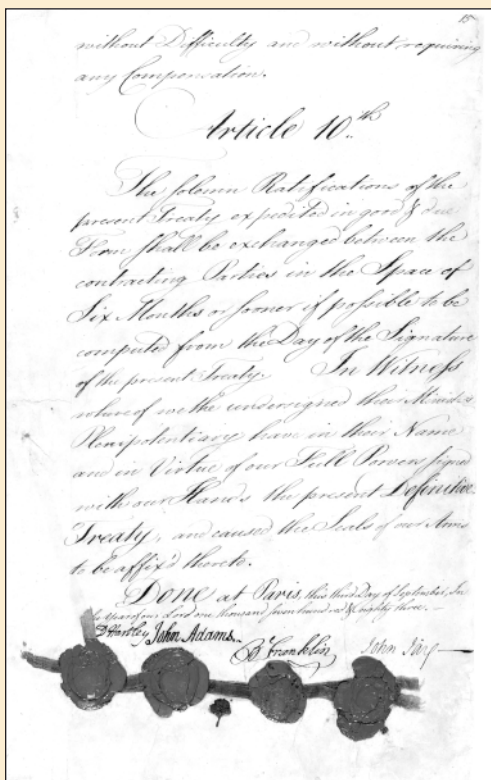 15
without Difficulty and without requiring
any Compensation.
Article 10.th
The solemn Ratifications of the
present Treaty expedited in good & due
Form shall be exchanged between the
contracting Parties in the Space of
Six Months or sooner if possible to be
computed from the Day of the Signature
of the present Treaty. In Witness
whereof we the undersigned their Ministers
Plenipotentiary have in their Name
and in Virtue of our Full Powers signed
with our Hands the present Definitive
Treaty, and caused the Seals of our Arms
to be affix'd thereto.
Done at Paris, this third Day of September, In
the Year of our Lord one thousand seven hundred & eighty three.
D Hartley John Adams. B Franklin John Jay